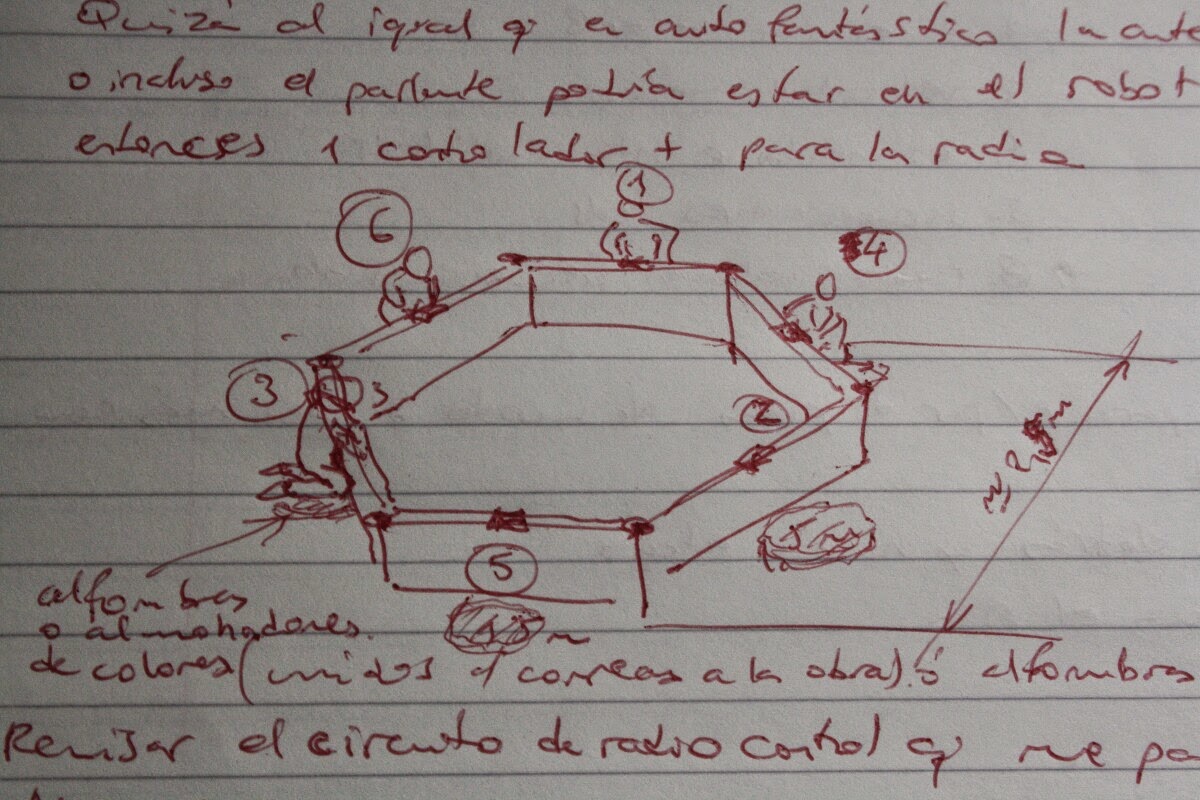 Quizá al igual q en auto fantástico la ante
o incluso el parlante podría estar en el robot
entonces 1 controlador + para la radio
1
6
4
3
3
2
5
alfombras
o almohadones.
de colores (unidos c/ correas a la obra) ó alfombras
Revisar el circuito de radio control q me pa